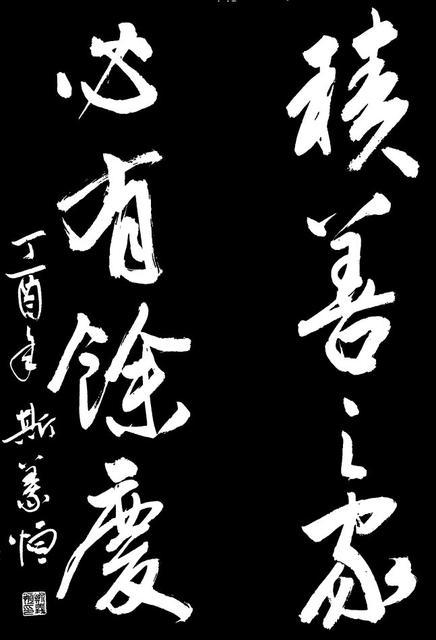 積善之家
必有餘慶
丁酉年 斯羲恒